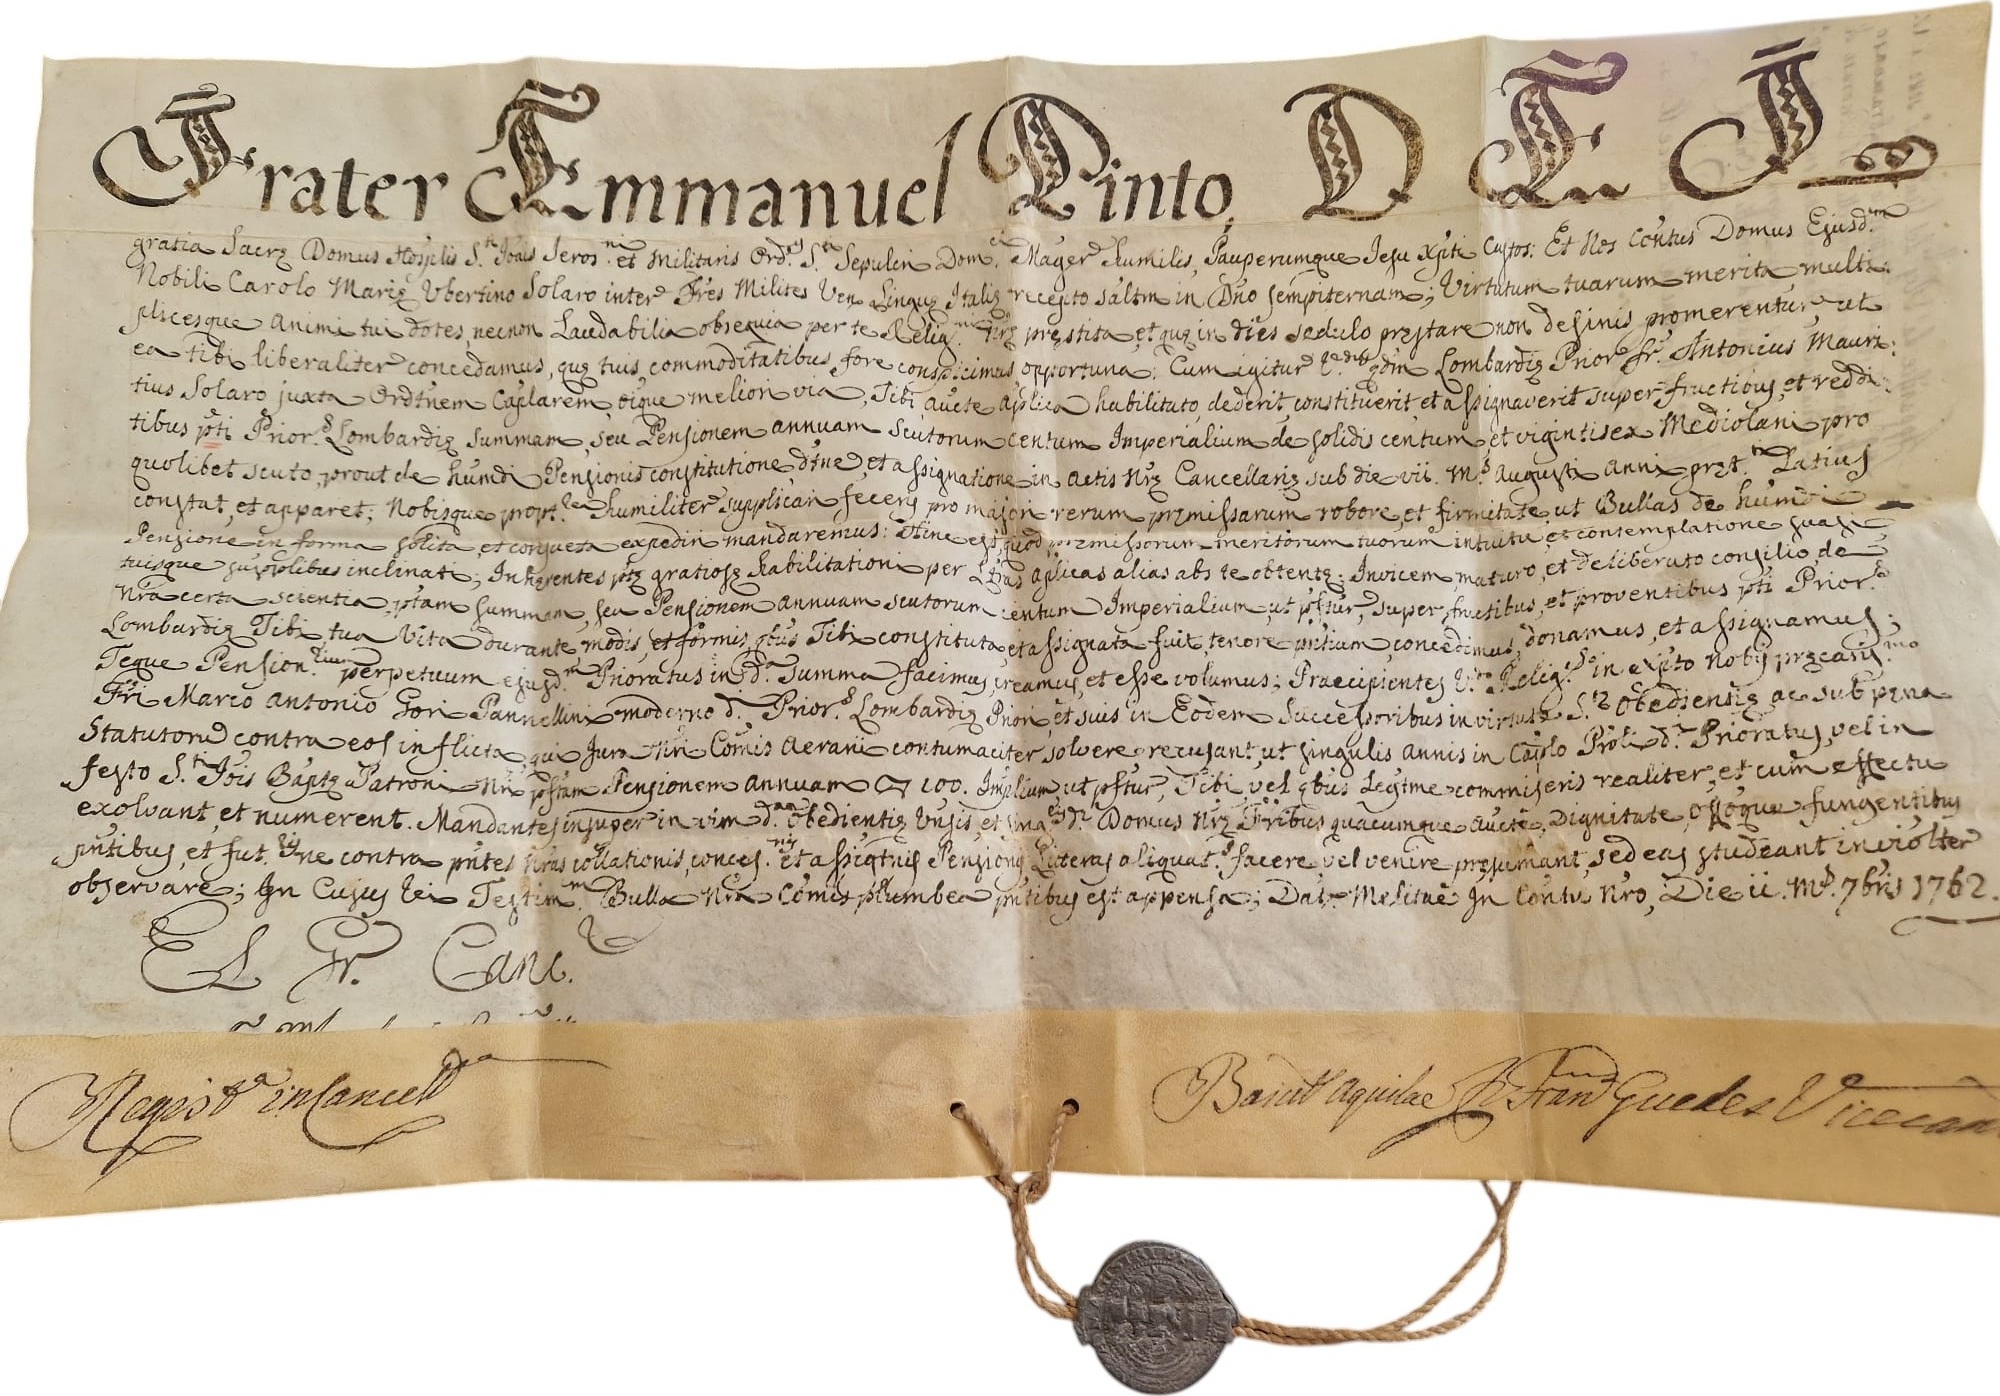 Frater Emmanuel Pinto, D E I
gratia Sacrę Domus Hosplis S.ti Joais Jeros.ni et Militaris Ord.s S.ti Sepulcri Dom.ci Mager humilis, Pauperumque Jesu Xpti Custos: Et Nos Contus Domus Ejusd.m
Nobili Carolo Marię Ubertino Solaro inter Fres Milites Ven. Linguę Italię recepto saltm in Dno sempiternam; Virtutum tuarum merita multi:
plicesque animi tui dotes, necnon Laudabilia obsequia per te Relig.ni Nrę pręstita, et quę in dies sedulo pręstare non desinis, promerentur, ut
ea Tibi liberaliter concedamus, quę tuis commoditatibus fore conspicimus opportuna: Cum igitur qdm Lombardię Prior fr. Antonius Mauri:
tius Solaro juxta Ordinem Caplarem, oique meliori via, Tibi, aucte Aplica habilitato, dederit, constituerit, et assignaverit super fructibus, et reddi:
tibus pti Prior.s Lombardię summam, seu Pensionem annuam scutorum centum Imperialium de solidis centum, et vigintisex Mediolani pro
quolibet scuto, prout de humdi Pensionis constitutione, dtne, et assignatione in actis Nrę Cancellarię sub die vii. M.s Augusti Anni pręt.ti Latius
constat, et apparet; Nobisque propt.ea humiliter supplicari feceris pro majori rerum pręmissarum robore, et firmitate, ut Bullas de humdi
Pensione in forma solita, et consueta expediri mandaremus: Hinc est, quod pręmissorum meritorum tuorum intuitu, et contemplatione suasi,
tuisque supplibus inclinati; Inhęrentes ptę gratiosę habilitationi per Lras Aplicas alias abs te obtentę; Invicem, maturo, et deliberato consilio, de
Nra certa scientia, ptam summam, seu Pensionem annuam scutorum centum Imperialium, ut pftur, super fructibus, et proventibus pti Prior.s
Lombardię Tibi tua Vita durante modis, et formis, qbus Tibi constituta, et assignata fuit, tenore pntium, concedimus, donamus, et assignamus;
Teque Pension.rium perpetuum ejusd.m Prioratus in d.a Summa facimus, creamus, et esse volumus; Praecipientes V.do Relig.so in expto nobis pręcariss.mo
Fri Marco Antonio Gori Pannellini moderno d. Prior.s Lombardię Priori, et suis in Eodem Successoribus in virtute S.tę obedientię ac sub pęna
Statutoru contra eos inflicta, qui Jura Nri Comis Aerarii contumaciter solvere recusant, ut singulis annis in Caplo Proli d.i Prioratus, vel in
festo S.ti Jois Baptę Patroni Nri pstam Pensionem annuam 100. Implium, ut pftur, Tibi, vel qbus Legtme commiseris realiter, et cum effectu
exolvant, et numerent. Mandantes insuper in vim d. obedientię Unisis, et d. Domus Nrę Fribus quacumque aucte, Dignitate, Offoque fungentibus
pntibus, et fut. Ne contra pntes Nras collationis, conces.nis et assigtnis Pensionis Literas aliquat.r facere, vel venire pręsumant, sed eas studeant inviolter
observare; In Cujus Rei Testim.m Bulla Nra Comis plumbea pntibus est appensa; Dat. Melitae In Contu Nro, Die ii. M.s 7bris 1762.
EL Gr. Canc.
Regist.a in Cancell.a
Baiul. Aquilae Fr. Fran. Guedes Vicecan